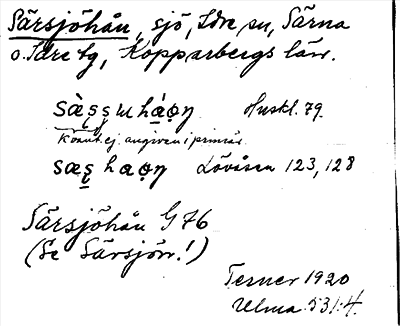 Särsjöhån, sjö, Idre sn, Särna
o. Idre tg, Kopparbergs län.
sàʂʂɯháo̩ŋ Huskl. 79.
Kvant. ej angiven i primär.
sæʂ haọŋ Lövåsen 123, 128
Särsjöhån G 76
(Se Särsjön!)
Tesner 1920
Ulma 531:4.